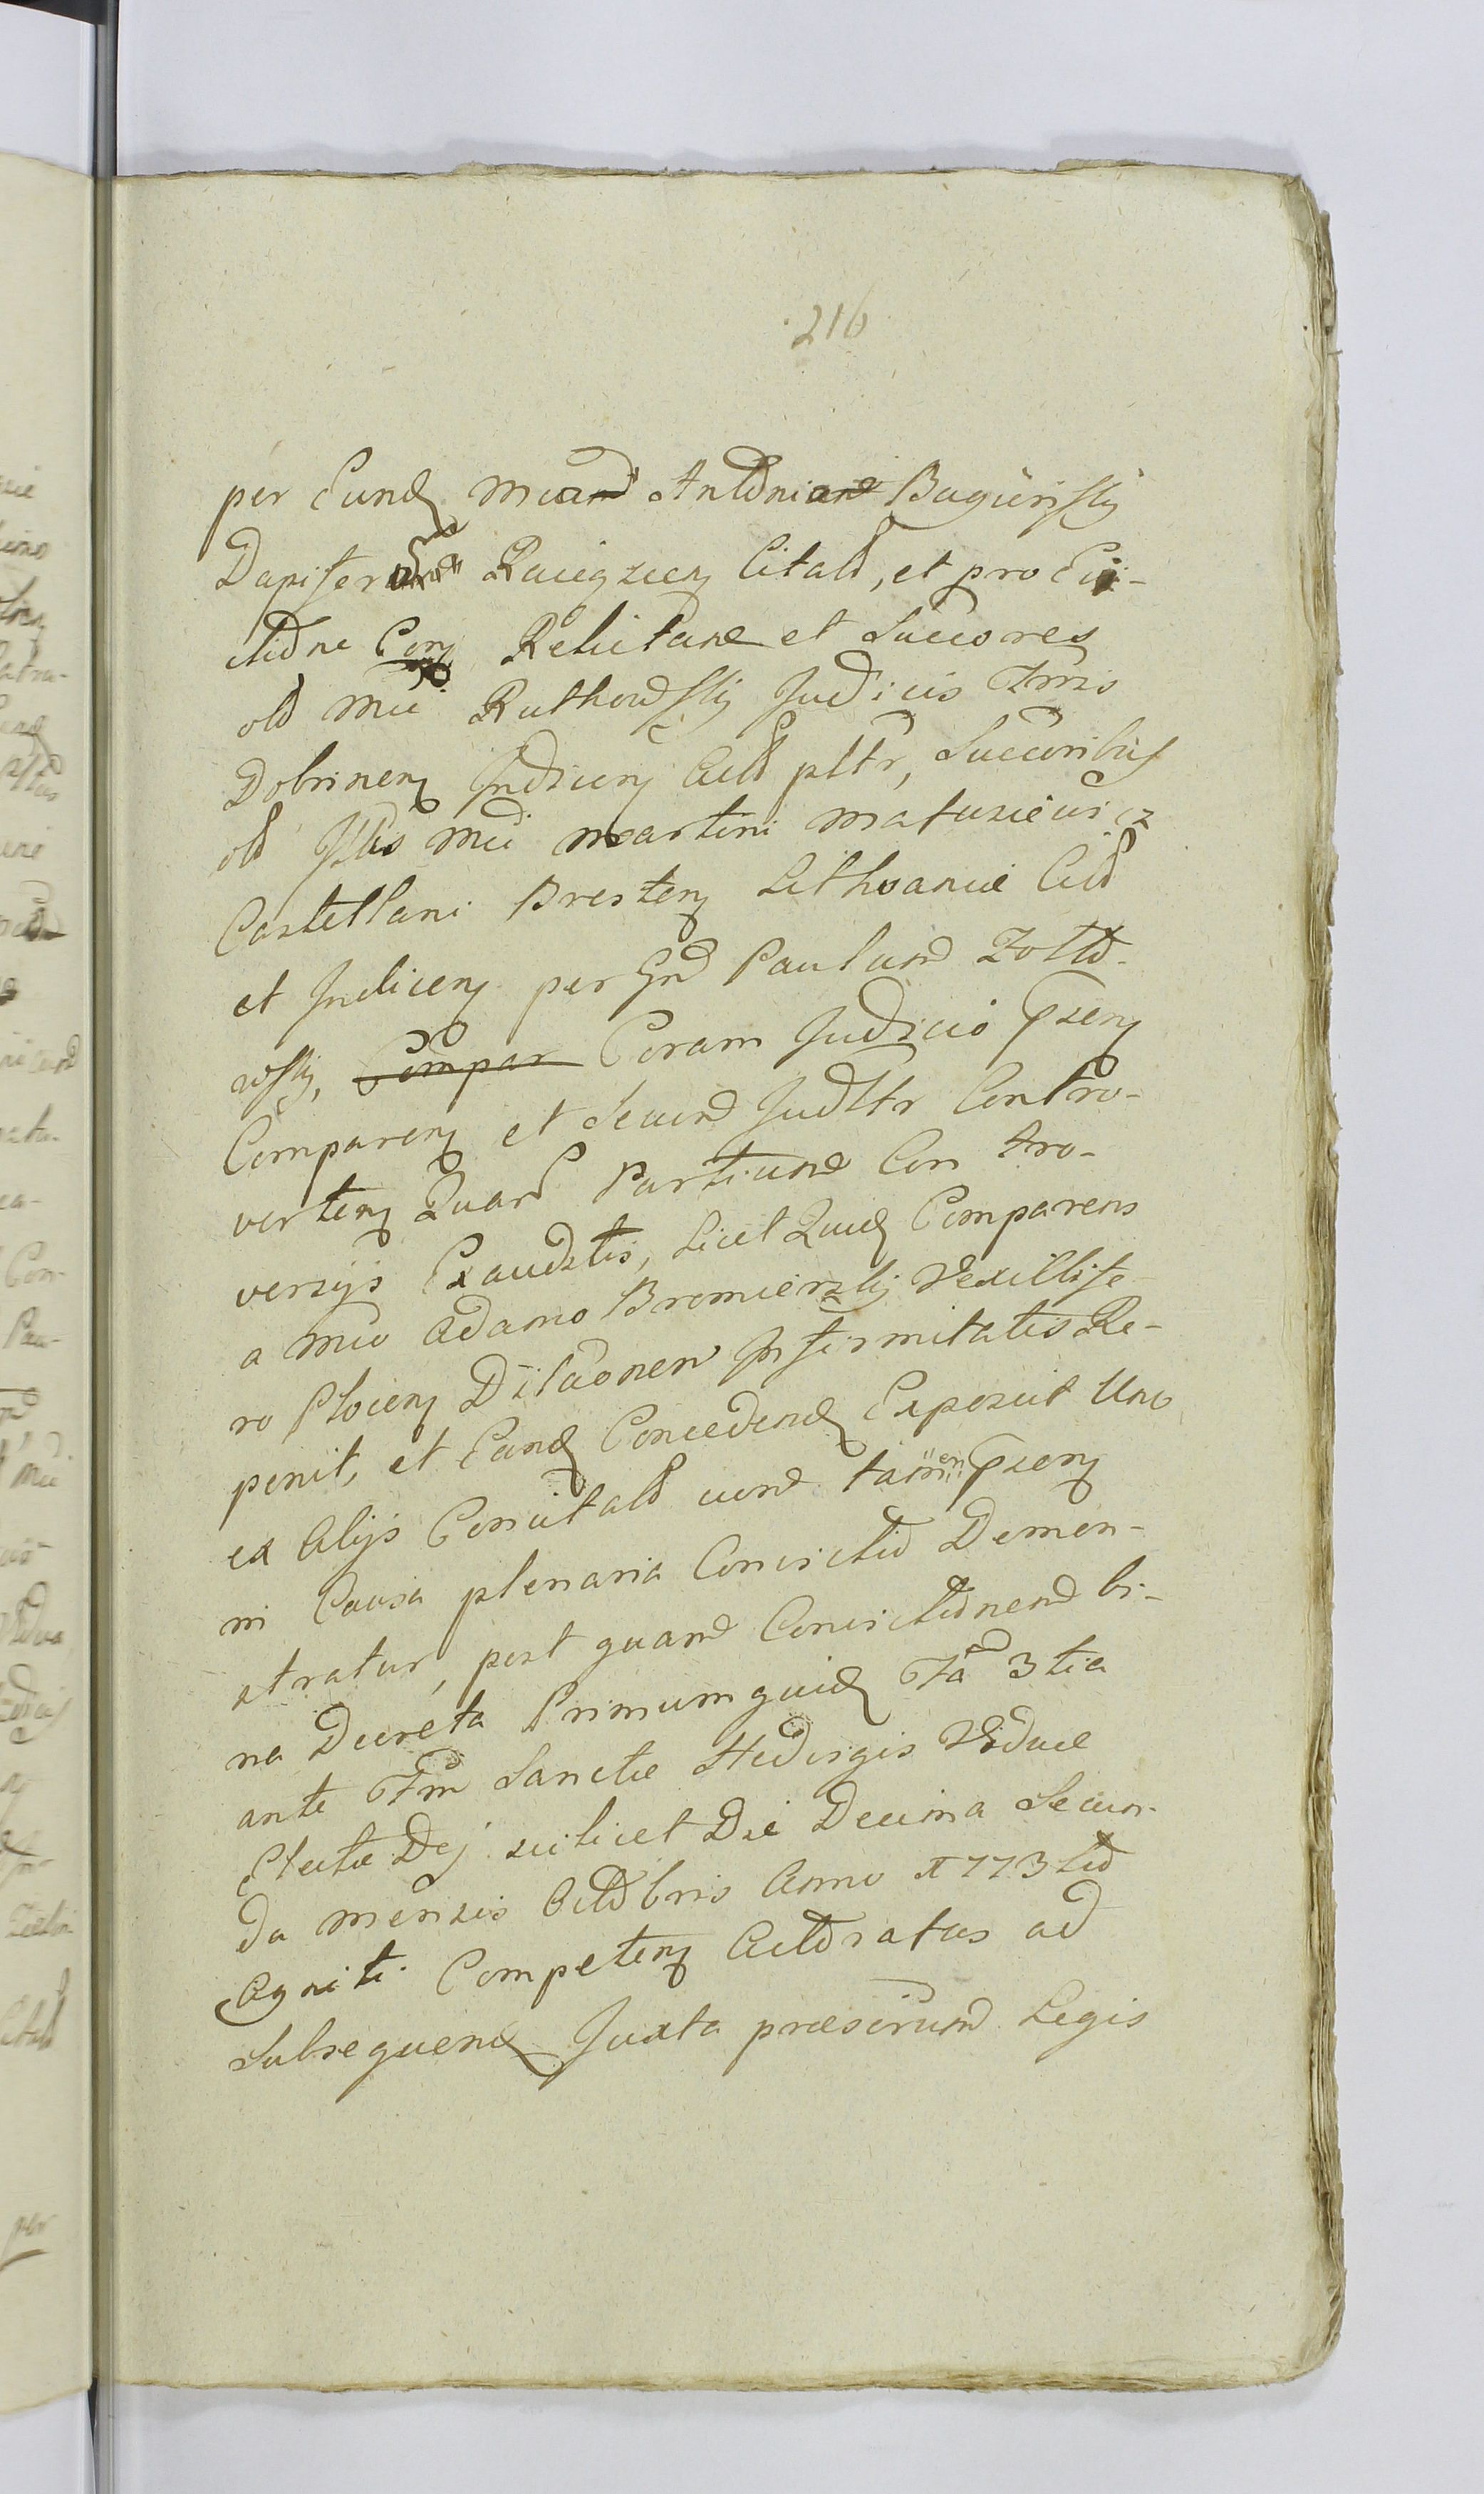 216
per Eund Mcum Antonium Bagieńsky
Dapiferum Raiegzien Citato, et pro Evi-
ctione Con Relictam et Succores
olo Mci Rutkowsky Judicis Tmis
Dobrinen Indicen Acto pltr, Succoribus
olo Illis Mci Martini Matusiewicz
Castellani Bresten Lithvaniæ Acto
et Indicen per Gnd Paulum Zolto-
wsky, Compar Coram Judicio pzen
Comparen et Secum Judltr Contro-
verten Quar Partium Con tro-
versijs Exaudtis, Licet Quid Comparens
a Mco Adamo Bromiersky Vexillife
ro Plocen Dilaonem Infirmitatis Re-
ponit, et Eand Concedend Exposcit Uno
ex Alijs Concitato cum tamen pzen
ni Causa plenaria Convictio Demon-
stratur, post quam Convictionem bi-
na Decreta Primum quid Fa 3tia
ante Fm Sanctæ Hedvigis Viduæ
Electæ Dej scilicet Die Decima Secun-
da Mensis Octobris Anno 1773tio
Agniti Competen Actoratus ad
Subsequend Juxta præscrium Legis